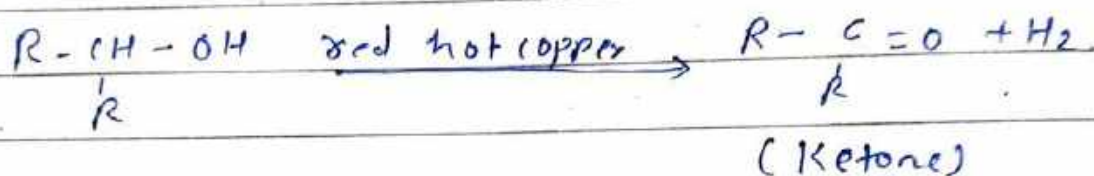 R - CH - OH red hot copper → R - C = O + H2
R R
(Ketone)